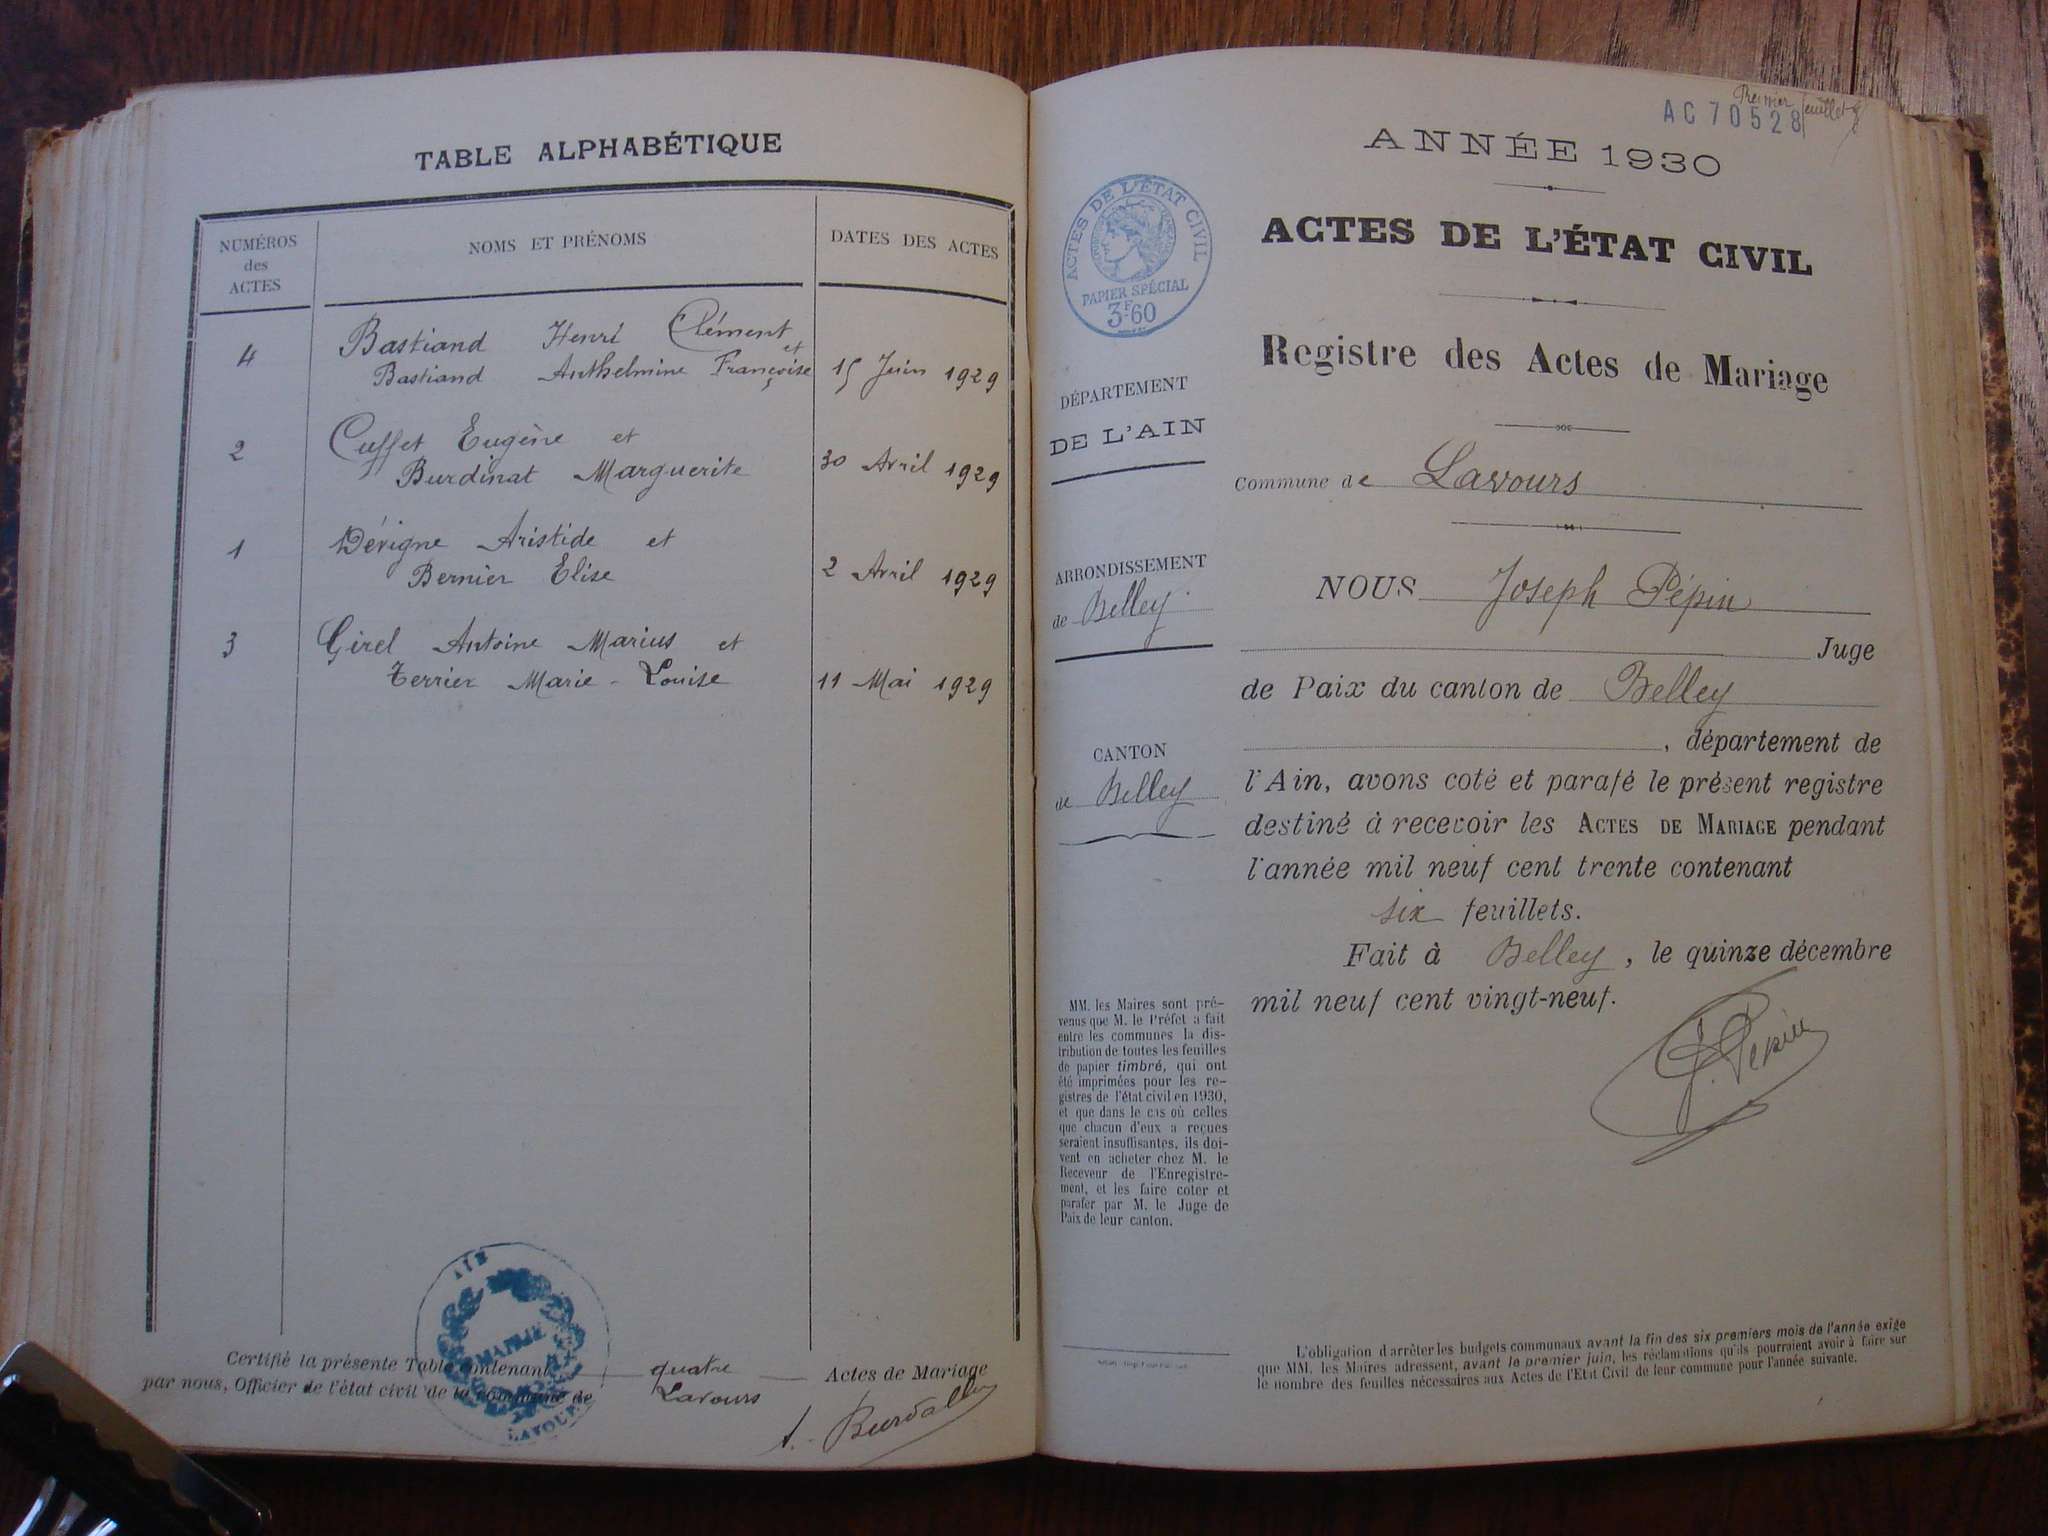 TABLE ALPHABÉTIQUE
NUMÉROS
des
ACTES
NOMS ET PRÉNOMS
DATES DES ACTES
4 Bastiand Henri Clément et
Bastiand Anthelmine Françoise 15 Juin 1929
2 Cuffet Eugène et
Burdinat Marguerite 30 Avril 1929
1 Dérigne Aristide et
Bernier Elise 2 Avril 1929
3 Girel Antoine Marius et
Terrier Marie-Louise 11 Mai 1929
AIN
MAIRIE
LAVOURS
Certifié la présente Table contenant quatre Actes de Mariage
par nous, Officier de l'état civil de la commune de Lavours
Premier feuillet
AC 70528
ANNÉE 1930
ACTES DE L'ÉTAT CIVIL
PAPIER SPÉCIAL
3F60
ACTES DE L'ÉTAT CIVIL
Registre des Actes de Mariage
DÉPARTEMENT
DE L'AIN
Commune de Lavours
ARRONDISSEMENT
de Belley
CANTON
de Belley
NOUS Joseph Pépin
Juge
de Paix du canton de Belley
, département de
l'Ain, avons coté et parafé le présent registre
destiné à recevoir les ACTES DE MARIAGE pendant
l'année mil neuf cent trente contenant
six feuillets.
Fait à Belley, le quinze décembre
mil neuf cent vingt-neuf.
J. Pépin
MM. les Maires sont pré-
venus que M. le Préfet a fait
entre les communes la dis-
tribution de toutes les feuilles
de papier timbré, qui ont
été imprimées pour les re-
gistres de l'état civil en 1930,
et que dans le cas où celles
que chacun d'eux a reçues
seraient insuffisantes, ils doi-
vent en acheter chez M. le
Receveur de l'Enregistre-
ment, et les faire coter et
parafer par M. le Juge de
Paix de leur canton.
L'obligation d'arrêter les budgets communaux avant la fin des six premiers mois de l'année exige
que MM. les Maires adressent, avant le premier juin, les réclamations qu'ils pourraient avoir à faire sur
le nombre des feuilles nécessaires aux Actes de l'Etat Civil de leur commune pour l'année suivante.